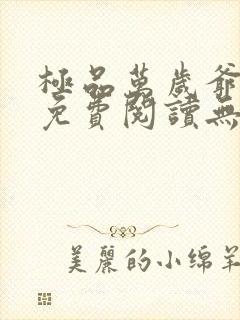 極品萬歲爺
免費閱讀無
美麗的小綿羊